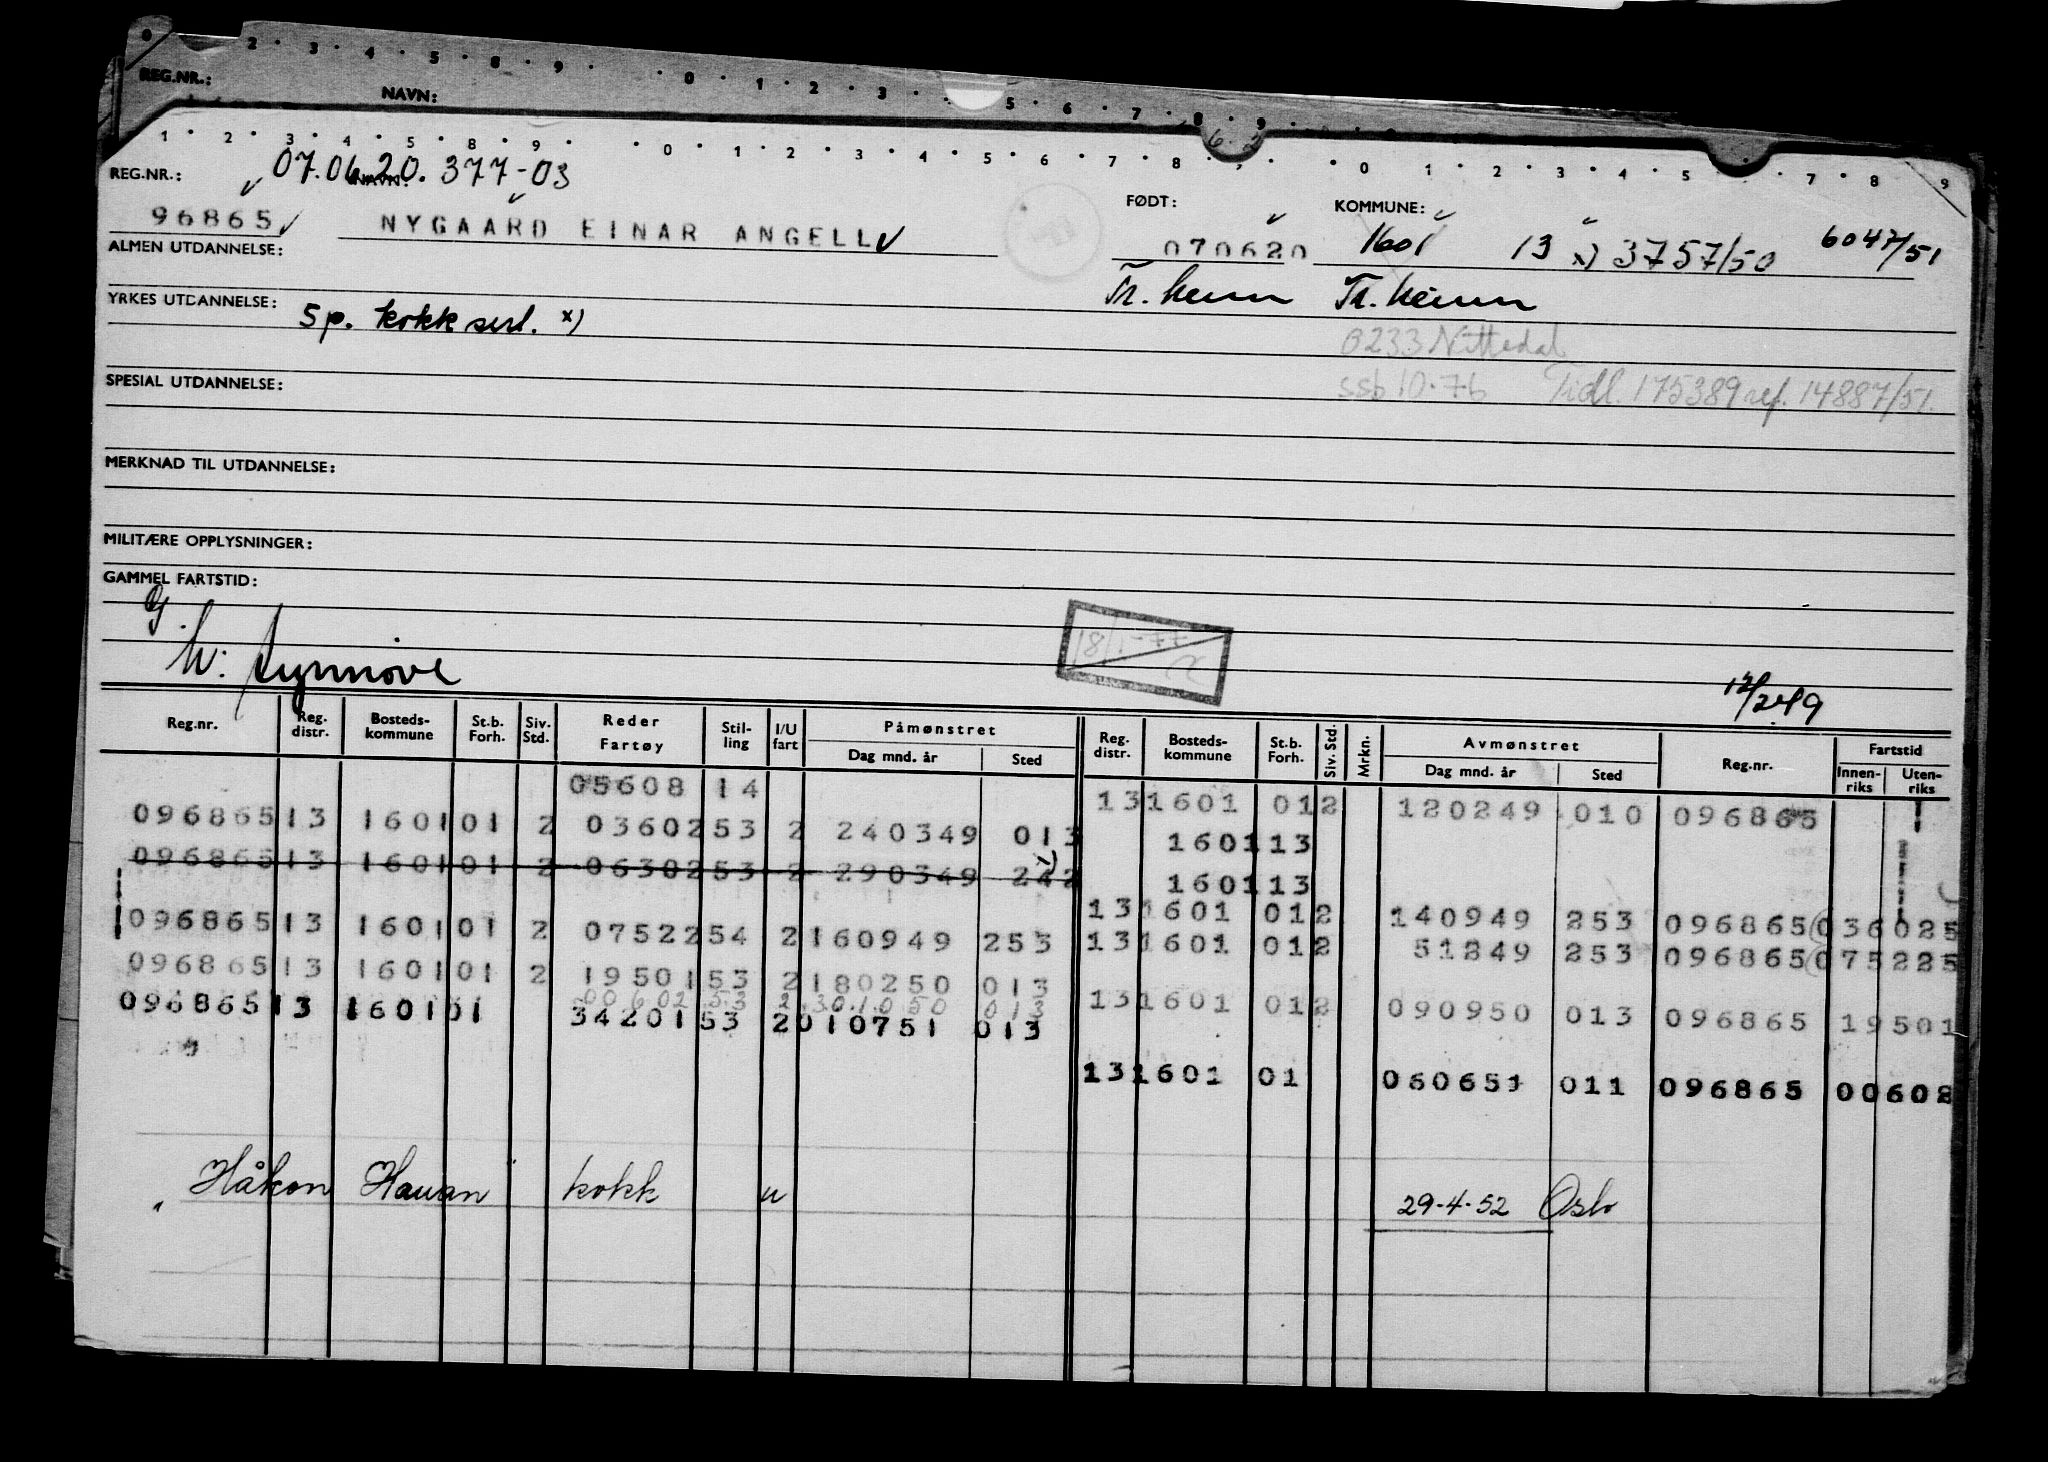 0 2 · 3 · 4 · 5 · 8 · 9 · · 0 · 1 · 2 · 3 · 5 · 6 · 7 · 8 · 9
REG.NR.: NAVN:
1 · 2 · 3 · 4 · 5 · 8 · 9 · · 0 · 1 · 2 · 3 · 4 · 5 · 6 · 7 · 8 · · 0 · 1 · 2 · 3 · 4 · 5 · 7 · 8 · 9
REG.NR.: NAVN: 07.06.20.377-03 FØDT: KOMMUNE:
96865 NYGAARD EINAR ANGELL 070620 1601 13 x) 3757/50 6047/51
ALMEN UTDANNELSE: Tr.heim Tr.heim
YRKES UTDANNELSE: Sp. kokk sert. x)
0233 Nittedal
SPESIAL UTDANNELSE: ssb 10.76 Tidl. 175389 ref. 14887/51.
MERKNAD TIL UTDANNELSE:
MILITÆRE OPPLYSNINGER:
GAMMEL FARTSTID:
18/1-77
M: Synnøve
12/2.49
Reg.nr. Reg. distr. Bosteds-kommune St.b. Forh. Siv. Std. Reder Fartøy Stil-ling I/U fart Påmønstret Dag mnd. år Sted Reg. distr. Bosteds-kommune St.b. Forh. Siv. Std. Mrkn. Avmønstret Dag mnd. år Sted Reg.nr. Fartstid Innen-riks Uten-riks
05608 14 13 1601 01 2 120249 010 096865
096865 13 1601 01 2 03602 53 2 240349 013 1601 13
096865 13 1601 01 2 06302 53 2 290349 242 x) 1601 13
13 1601 01 2 140949 253 096865 036025
096865 13 1601 01 2 07522 54 2 160949 253 13 1601 01 2 51249 253 096865 075225
096865 13 1601 01 2 19501 53 2 180250 013
00602 53 2 301050 013 13 1601 01 2 090950 013 096865 19501
096865 13 1601 01 34201 53 2 010751 013
13 1601 01 060651 011 096865 00602
Håkon Hauan kokk u 29-4-52 Oslo